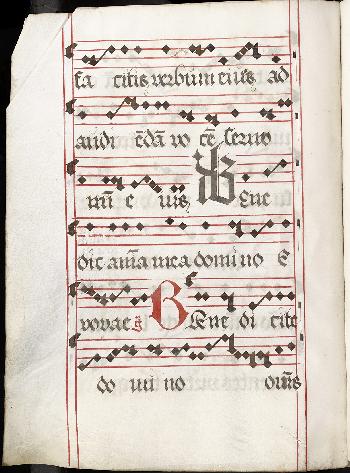 fa citis verbum eius ad
audi ēdā vo cē sermo
nū e ius Bene
dic anīa mea domino E
vovae g̃ Bene di cite
do mi no omīs